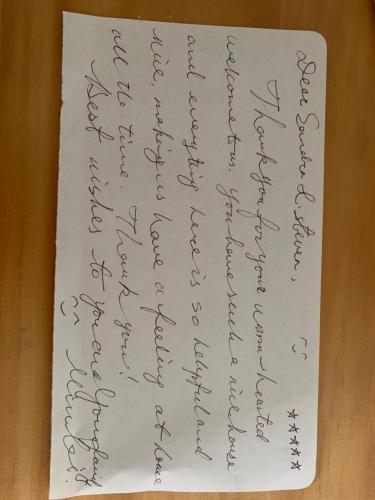 Dear Sandra & Steven,
★★★★★
Thank you for your warm-hearted
welcome to us. You have such a nice house
and everything here is so helpful and
nice, making us have a feeling at home
all the time. Thank you!
Best wishes to you and your family.